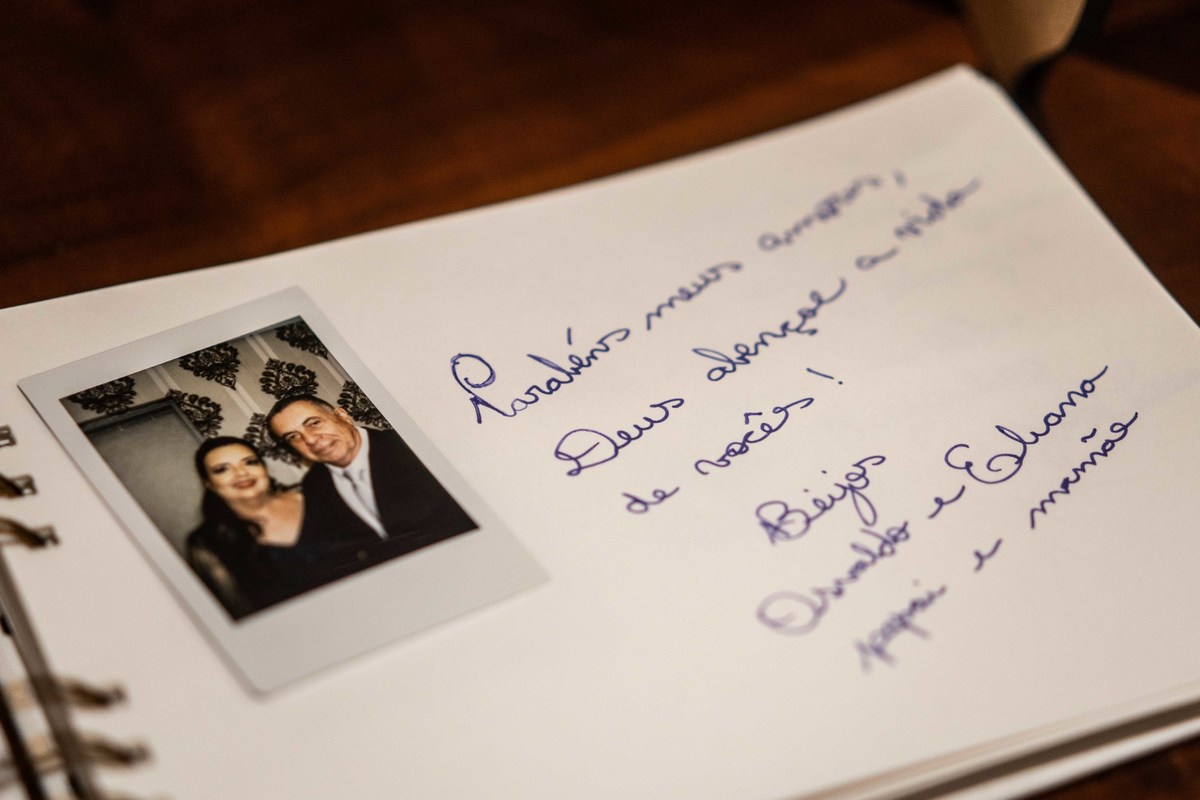 Parabéns meus amores,
Deus abençoe a vida
de vocês!
Beijos
Osvaldo e Eliana
papai e mamãe